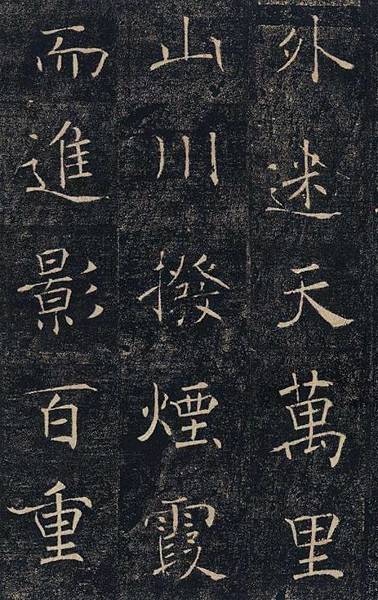 外迷天萬里
山川撥煙霞
而進影百重